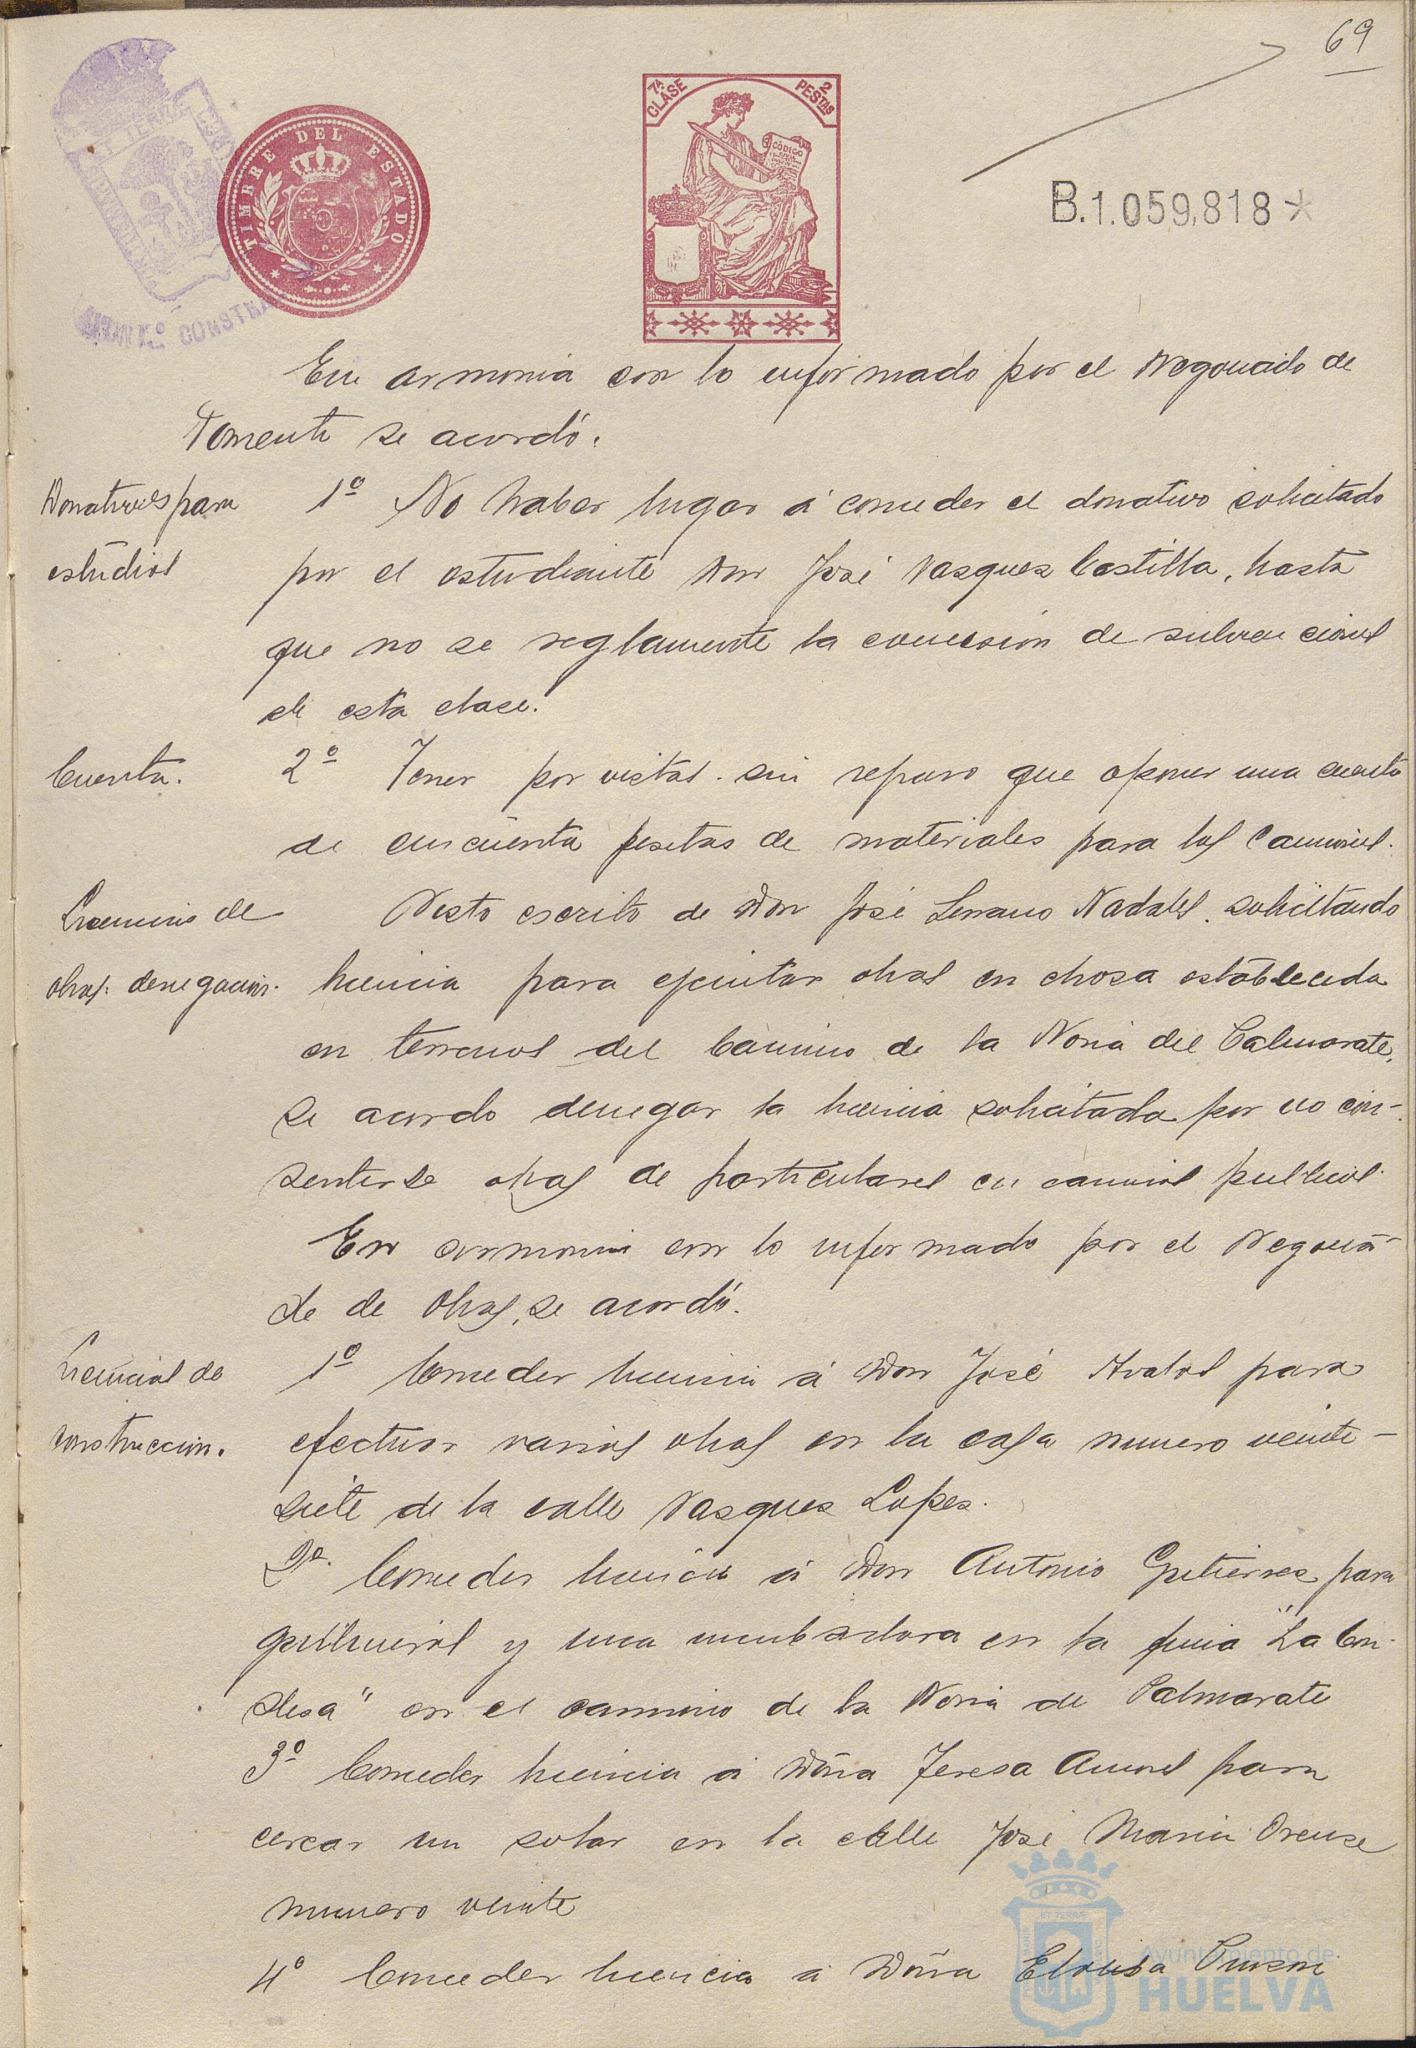 69
7ª CLASE
2 PESTAS
CÓDIGO
TIMBRE DEL ESTADO
B.1.059,818*
CONSTRA
En armonia con lo informado por el Negociado de
Fomento se acordó.
Donativos para
estúdios
1º No haber lugar á conceder el donativo solicitado
por el estudiante Don José Vasquez Castilla, hasta
que no se reglamente la concesión de subvenciones
de esta clase.
Cuenta.
2º Tener por vistas sin reparo que oponer una cuenta
de cincuenta pesetas de materiales para los caminos.
Licencias de
obras denegacion.
Visto escrito de Don José Serrano Nadales, solicitando
licencia para ejecutar obras en chosa establecida
en terrenos del Camino de la Noria del Calmarate,
se acordo denegar la licencia solicitada por no con-
sentirse obras de particulares en caminos publicos.
En armonia con lo informado por el Negocia-
do de Obras, se acordó.
Licencias de
construccion.
1º Conceder licencia á Don José Avalos para
efectuar varias obras en la casa numero veinte-
siete de la calle Vasques Lopes.
2º. Conceder licencia á Don Antonio Gutierrez para
gallineros y una incubadora en la finca "La Con-
desa" en el camino de la Noria de Palmarate
3º Conceder licencia á Doña Teresa para
cercar un solar en la calle José Maria Orense
numero veinte
4º Conceder licencia á Doña Elouisa
Ayuntamiento de
HUELVA